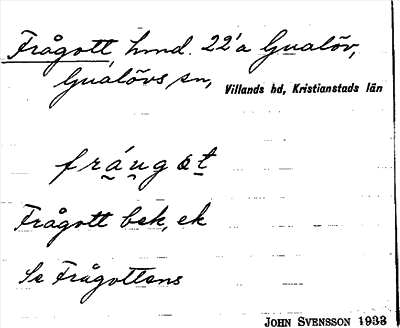 Frågott, hmd. 22'a Gualöv,
Gualövs sn, Villands hd, Kristianstads län
Frågott bek, ek
Se Frågottens
JOHN SVENSSON 1933